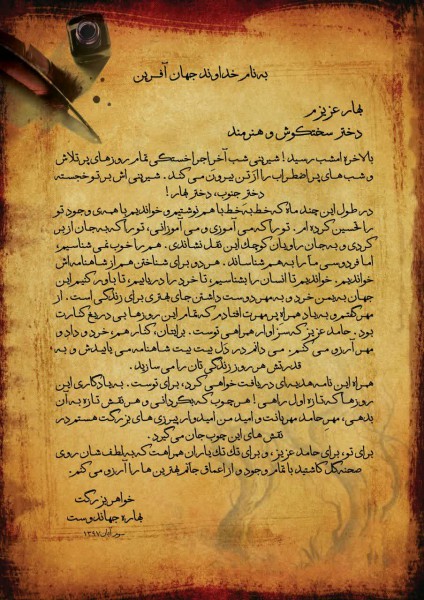 به نام خداوند جهان آفرین
بهار عزیزم
دختر سختکوش و هنرمند
بالاخره امشب رسید! شیرینی شب آخر اجرا خستگی تمام روزهای پر تلاش
و شب های پر اضطراب را از تن بیرون می کند. شیرینی اش بر تو خجسته
دختر جنوب، دختر بهار!
در طول این چند ماه که خط به خط با هم نوشتیم و خواندیم با همه ی وجود تو
را تحسین کرده ام. تو را که می آموزی و می آموزانی، تو را که به جان از بر
کردی و به جان راویان کوچک این نقل نشاندی. هم را خوب نمی شناسیم،
اما فردوسی ما را به هم شناساند. هر دو برای شناختن هم از شاهنامه اش
خواندیم. خواندیم تا انسان را بشناسیم، تا خرد را دریابیم، تا باور کنیم این
جهان به یمن خرد و به مهر دوست داشتن جای بهتری برای زندگی است. از
مهر گفتم و به یاد همراه پر مهرت افتادم که تمام این روزها بی دریغ کنارت
بود. حامد عزیز که سزاوار همراهی توست. برایتان، کنار هم، خرد و داد و
مهر آرزو می کنم. می دانم در دل بیت بیت شاهنامه می یابیدش و به
قدرتش هر روز زندگی تان را می سازید.
همراه این نامه هدیه ای دریافت خواهی کرد، برای توست. به یادگاری این
روزها که تازه اول راهی! هر چوب که بگردانی و هر نقش تازه به آن
بدهی، مهر حامد مهربانت و امید من امیدوار پیرزی های بزرگت هستم در
نقش های این چوب جان می گیرد.
برای تو، برای حامد عزیز، و برای تک تک یاران همراهت که به لطف شان روی
صحنه گل کاشتید با تمام وجود و از اعماق جانم بهترین ها را آرزو می کنم.
خواهر بزرگت
بهاره جهاندوست
آبان ۱۳۹۷